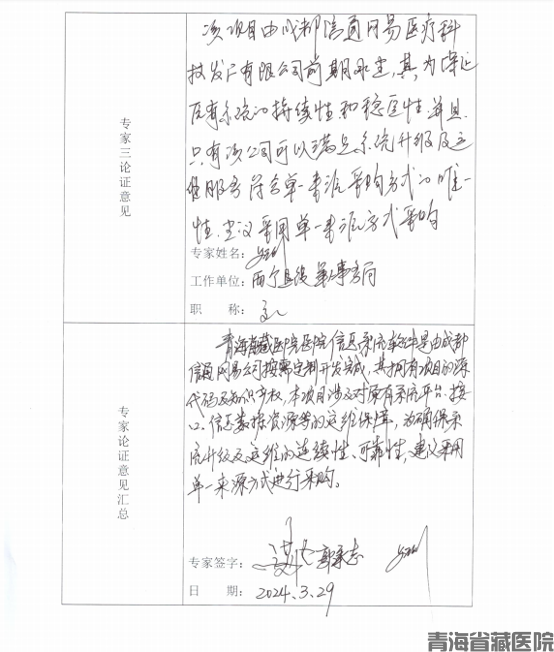 专家三论证意见
该项目由成都信通网易医疗科
技发厂有限公司前期承建,其,为保证
原有系统的持续性和稳定性.并且
只有该公司可以满足系统升级及运
维服务符合单一来源采购方式的唯一
性.建议采用单一来源方式采购
专家姓名:
工作单位:
职 称:
专家论证意见汇总
青海省藏医院医院信息系统软件是由成都
信通网易公司按需定制开发完成,其拥有项目的源
代码及知识产权,本项目涉及对原有系统平台、接
口、信息数据资源等的运维保障,为确保系
统升级及运维的连续性、可靠性,建议采用
单一来源方式进行采购。
专家签字: 郭承志
日 期: 2024.3.29
青海省藏医院